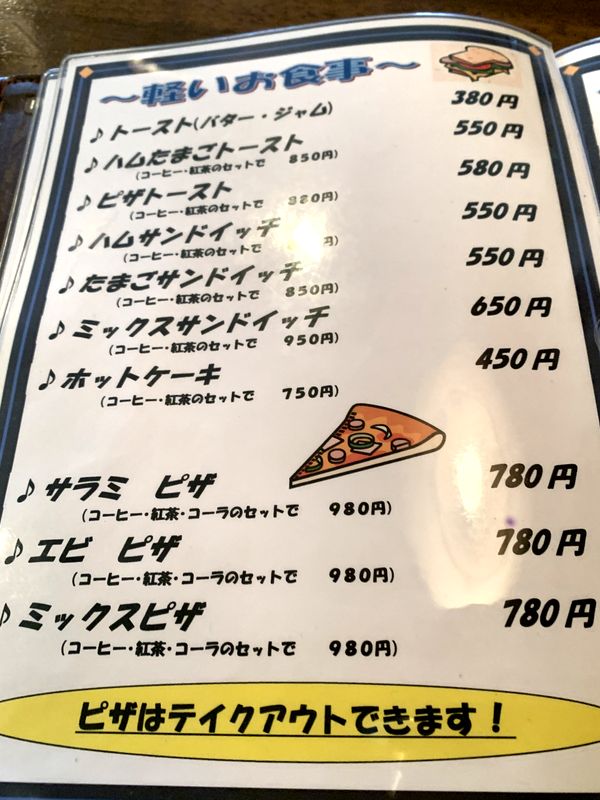 ～軽いお食事～
♪トースト(バター・ジャム) 380円
♪ハムたまごトースト 550円
(コーヒー・紅茶のセットで 850円)
♪ピザトースト 580円
(コーヒー・紅茶のセットで 880円)
♪ハムサンドイッチ 550円
(コーヒー・紅茶のセットで 円)
♪たまごサンドイッチ 550円
(コーヒー・紅茶のセットで 850円)
♪ミックスサンドイッチ 650円
(コーヒー・紅茶のセットで 950円)
♪ホットケーキ 450円
(コーヒー・紅茶のセットで 750円)
♪サラミ ピザ 780円
(コーヒー・紅茶・コーラのセットで 980円)
♪エビ ピザ 780円
(コーヒー・紅茶・コーラのセットで 980円)
♪ミックスピザ 780円
(コーヒー・紅茶・コーラのセットで 980円)
ピザはテイクアウトできます！